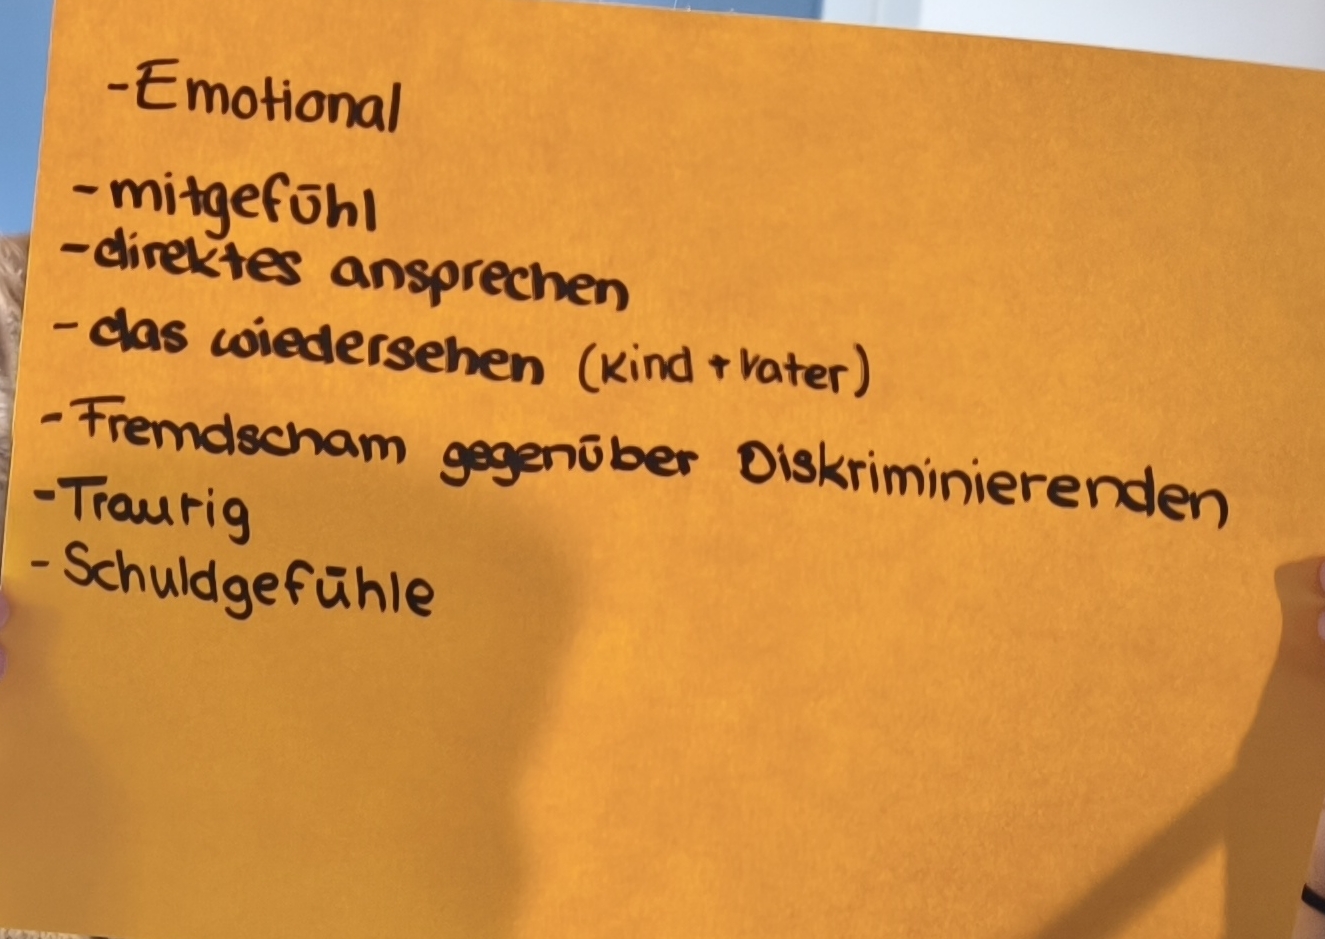 -Emotional
-mitgefühl
-direktes ansprechen
-das wiedersehen (Kind + Vater)
-Fremdscham gegenüber Diskriminierenden
-Traurig
-Schuldgefühle